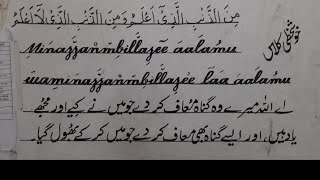 مِنَ الذَّنْبِ الَّذِیْ اَعْلَمُ وَمِنَ الذَّنْبِ الَّذِیْ لَا اَعْلَمُ
خوشخطی کلاس
Minazzanmbillazee aalamu
waminazzanmbillazee laa aalamu
اے اللہ میرے وہ گناہ معاف کر دے جو میں نے کیے اور مجھے
یاد ہیں، اور ایسے گناہ بھی معاف کر دے جو میں کر کے بھول گیا